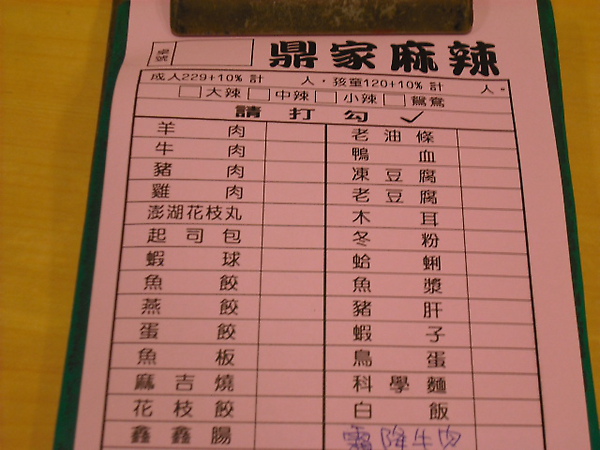 桌號
鼎家麻辣
成人229+10% 計 人·孩童120+10% 計 人·
□大辣 □中辣 □小辣 □鴛鴦
請打勾✓
羊肉 老油條
牛肉 鴨血
豬肉 凍豆腐
雞肉 老豆腐
澎湖花枝丸 木耳
起司包 冬粉
蝦球 蛤蜊
魚餃 魚漿
燕餃 豬肝
蛋餃 蝦子
魚板 鳥蛋
麻吉燒 科學麵
花枝餃 白飯
鑫鑫腸 霜降牛肉